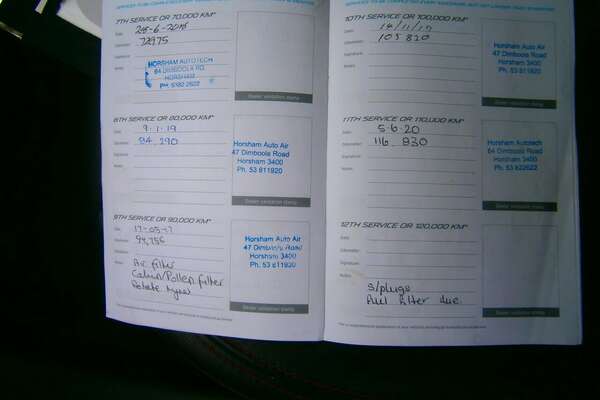 7TH SERVICE OR 70,000 KM*
Date 28-6-2018
Odometer 72975
Signature
Notes
HORSHAM AUTOTECH
64 DIMBOOLA RD.
HORSHAM
Dealer validation stamp
8TH SERVICE OR 80,000 KM*
Date 9-1-19
Odometer 84 290
Signature
Notes
Horsham Auto Air
47 Dimboola Road
Horsham 3400
Ph. 53 811920
Dealer validation stamp
9TH SERVICE OR 90,000 KM*
Date 17-05-17
Odometer 94,756
Signature
Notes
Air filter
Cabin/Pollen filter
Rotate tyres
Horsham Auto Air
47 Dimboola Road
Horsham 3400
Ph. 53 811920
Dealer validation stamp
10TH SERVICE OR 100,000 KM*
Date
Odometer 105 820
Signature
Notes
Horsham Auto Air
47 Dimboola Road
Horsham 3400
Ph. 53 811920
Dealer validation stamp
11TH SERVICE OR 110,000 KM*
Date 5-6-20
Odometer 116 930
Signature
Notes
Horsham Autotech
64 Dimboola Road
Horsham 3400
Ph. 53 822622
Dealer validation stamp
12TH SERVICE OR 120,000 KM*
Date
Odometer
Signature
Notes
S/plugs
Fuel filter due.
Dealer validation stamp